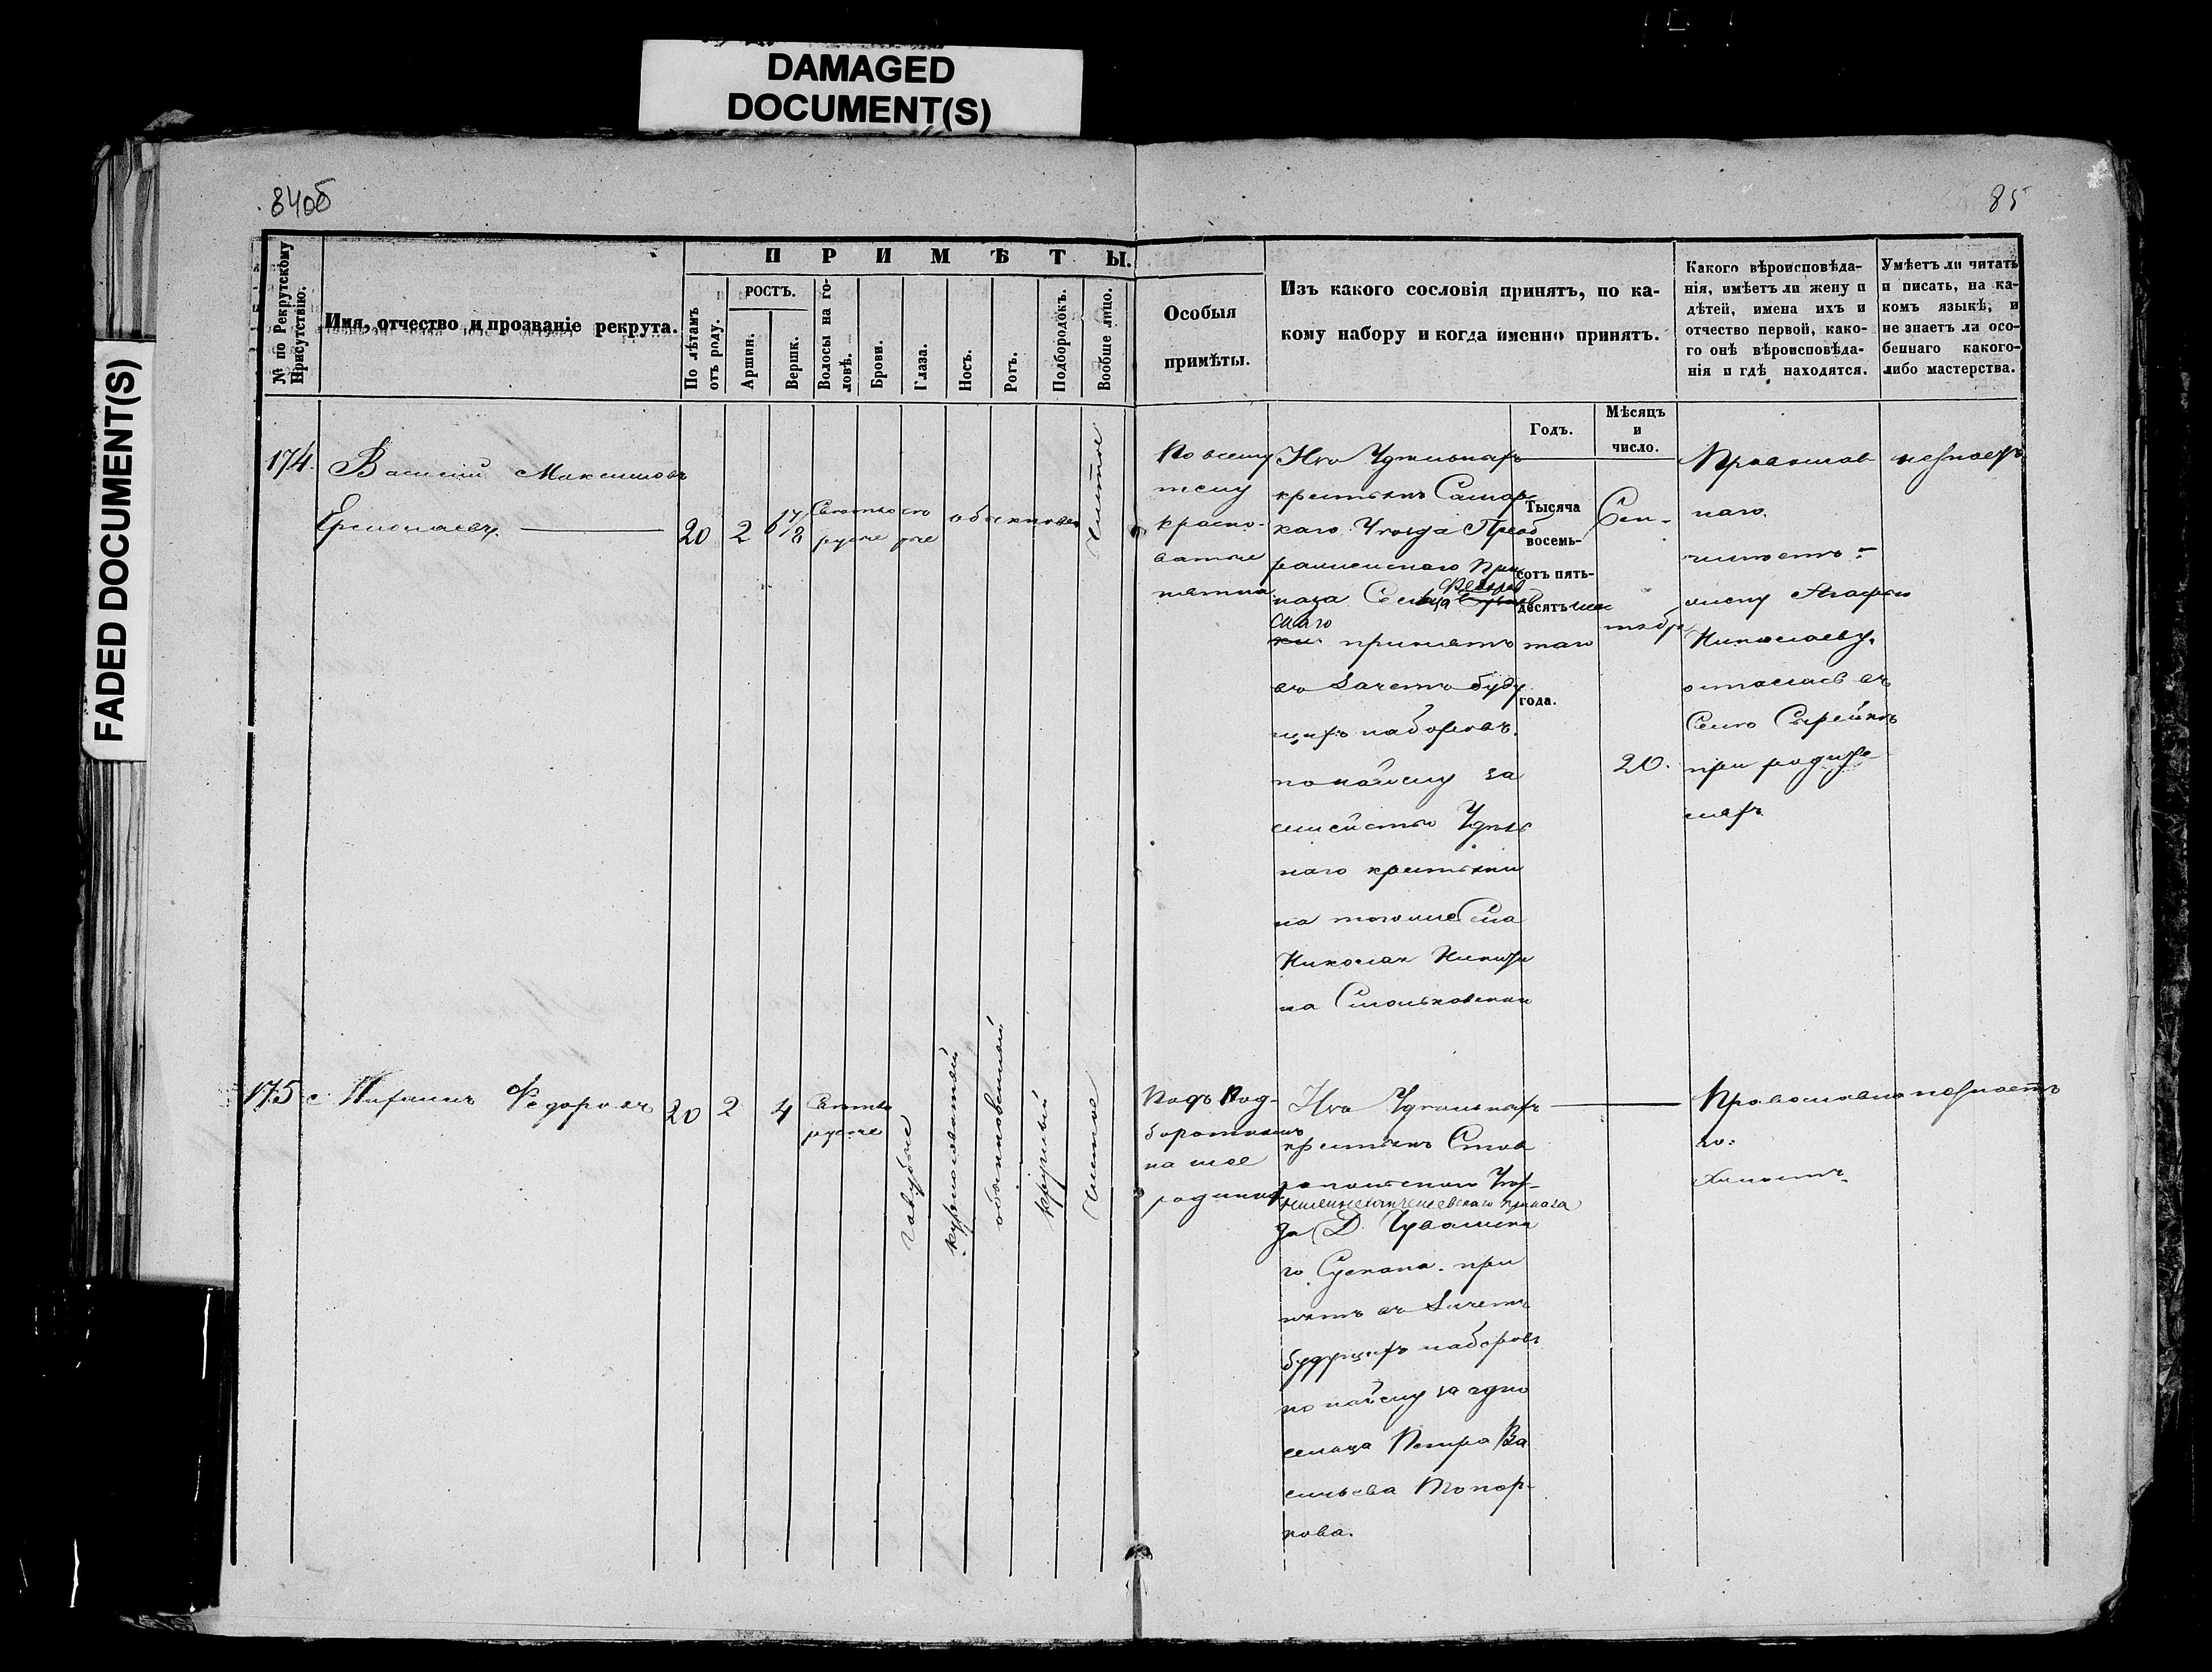 DAMAGED
DOCUMENT(S)
FADED DOCUMENT(S)
84об
85
№ по Рекрутскому Присутствію.
Имя, отчество и прозваніе рекрута.
ПРИМѢТЫ.
По лѣтамъ отъ роду.
РОСТЪ.
Аршин.
Вершк.
Волосы на головѣ.
Брови.
Глаза.
Носъ.
Ротъ.
Подбородокъ.
Вообще лицо.
Особыя
примѣты.
Изъ какого сословія принятъ, по ка-
кому набору и когда именно принятъ.
Какого вѣроисповѣда-
нія, имѣетъ ли жену и
дѣтей, имена ихъ и
отчество первой, како-
го онѣ вѣроисповѣда-
нія и гдѣ находятся.
Умѣетъ ли читать
и писать, на ка-
комъ языкѣ, и
не знаетъ ли осо-
беннаго какого-
либо мастерства.
Годъ.
Мѣсяцъ
и
число.
174.
Василій Максимовъ
Ермолаевъ.
20
2
6 1/8
Свѣтло
русые
обыкновен
чистое
По всему
телу
красно-
ватые
пятна
Изъ Удѣльныхъ
крестьянъ Самар
скаго Уѣзда Преоб
раженскаго При
каза Села
скаго
принятъ
въ Зачетъ буду
щихъ наборовъ.
по найму за
семейство Удѣль
наго крестьяни
на того же Села
Николая Никити
на
Тысяча
восемь-
сотъ пять-
десятъ шес
таго
года.
Сен-
тября
20.
Православ
наго.
женатъ -
жену Агафью
Николаеву.
осталась въ
Селе Сырейкѣ
при родите-
ляхъ
незнаетъ
175
Федоровъ
20
2
4
Свѣтло
русые
голубые
курносоватый
обыкновенный
круглый
чистое
Подъ Под-
бородкомъ
на шее
родинка
Изъ Удѣльныхъ
крестьянъ Став
ропольскаго Уѣз-
приказа
да Д. Чувашска
го Сускана. при
нятъ въ Зачетъ
будущихъ наборовъ
по найму за одно
сельца Петра Ва
сильева Топор-
кова.
Православна
го.
Холостъ.
незнаетъ